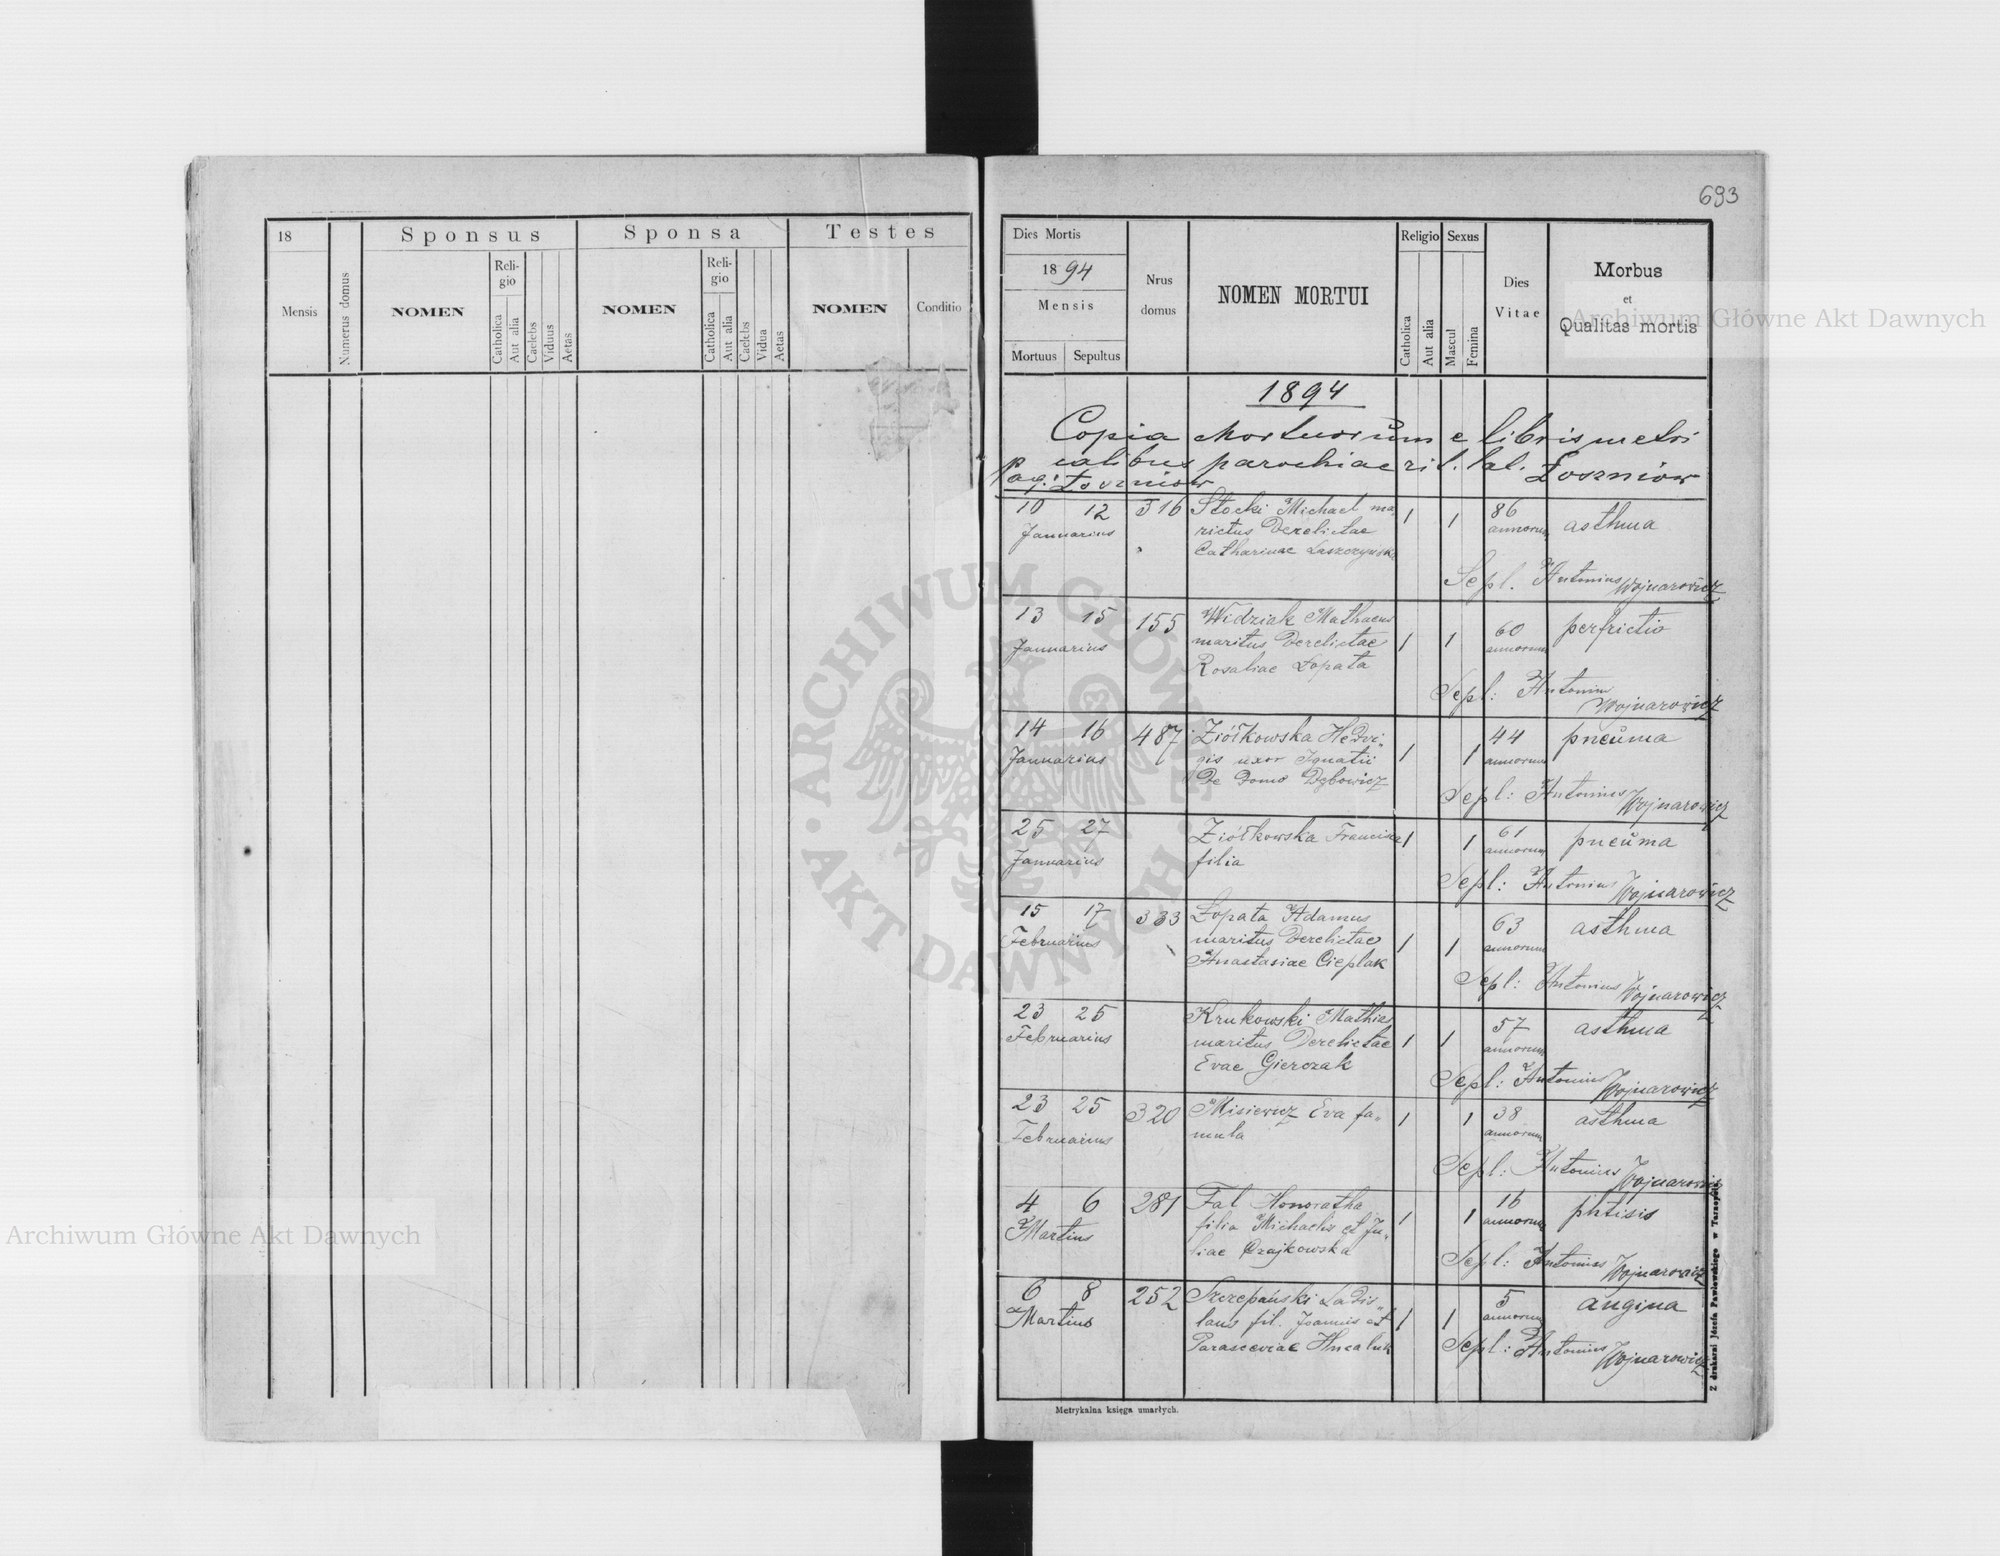 693
18
Mensis
Numerus domus
Sponsus
NOMEN
Religio
Catholica
Aut alia
Caelebs
Viduus
Aetas
Sponsa
NOMEN
Religio
Catholica
Aut alia
Caelebs
Vidua
Aetas
Testes
NOMEN
Conditio
Dies Mortis
1894
Mensis
Mortuus Sepultus
Nrus
domus
NOMEN MORTUI
Religio
Catholica
Aut alia
Sexus
Mascul
Femina
Dies
Vitae
Morbus
et
Qualitas mortis
1894
Copia Mortuorum e libris metri
calibus parochiae rit. lat. Łoszniów
Pag: Łoszniów
10 12 316 Stocki Michael ma- 1 1 86 asthma
Januarius rictus Derelictae annorum
Catharinae Laszczyńska
Sepl. Antonius Wojnarowicz
13 15 155 Widziak Mathaeus 60 perfrictio
Januarius maritus Derelictae 1 1 annorum
Rosaliae Łopata
Sepl: Antonius Wojnarowicz
14 16 487 Ziółkowska Hedvi„ 44 pneuma
Januarius gis uxor Ignatii 1 1 annorum
De Domo Dębowicz
Sepl: Antonius Wojnarowicz
25 27 Ziółkowska Francisca 1 1 61 pneuma
Januarius filia annorum
Sepl: Antonius Wojnarowicz
15 17 333 Łopata Adamus 63 asthma
Februarius maritus Derelictae 1 1 annorum
Anastasiae Cieplak
Sepl: Antonius Wojnarowicz
23 25 Krukowski Mathias 57 asthma
Februarius maritus Derelictae 1 1 annorum
Evae Gierczak
Sepl: Antonius Wojnarowicz
23 25 320 Misiewicz Eva fa„ 1 1 38 asthma
Februarius mula annorum
Sepl: Antonius Wojnarowicz
4 6 281 Fal Honoratha 16 phtisis
Martius filia Michaelis et Ju„ 1 1 annorum
liae Czajkowska
Sepl: Antonius Wojnarowicz
6 8 252 Szczepański Ladis„ 5 angina
Martius laus fil. Joannis et 1 1 annorum
Parasceviae Hucaluk
Sepl: Antonius Wojnarowicz
Metrykalna księga umarłych.
Z drukarni Józefa Pawłowskiego w Tarnopolu.
Archiwum Główne Akt Dawnych
Archiwum Główne Akt Dawnych
ARCHIWUM GŁÓWNE · AKT DAWNYCH ·